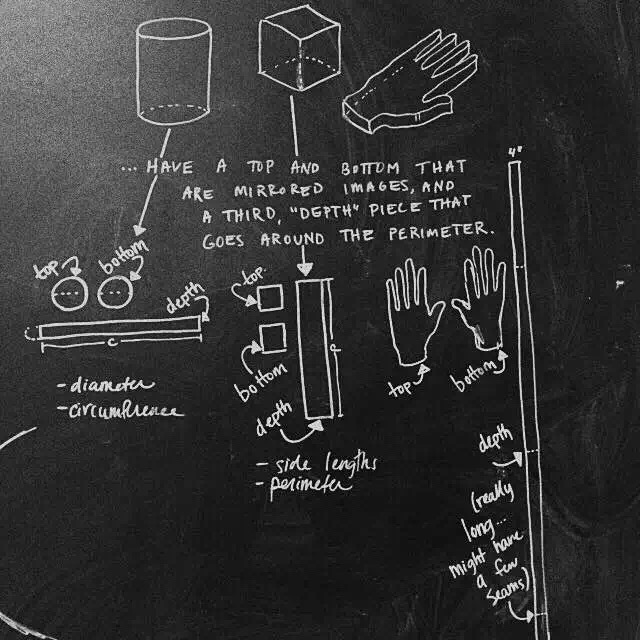 ... HAVE A TOP AND BOTTOM THAT
ARE MIRRORED IMAGES, AND
A THIRD, "DEPTH" PIECE THAT
GOES AROUND THE PERIMETER.
top
bottom
depth
C
- diameter
- circumference
top
bottom
depth
P
- side lengths
- perimeter
top
bottom
4"
depth
(really
long...
might have
a few
seams)